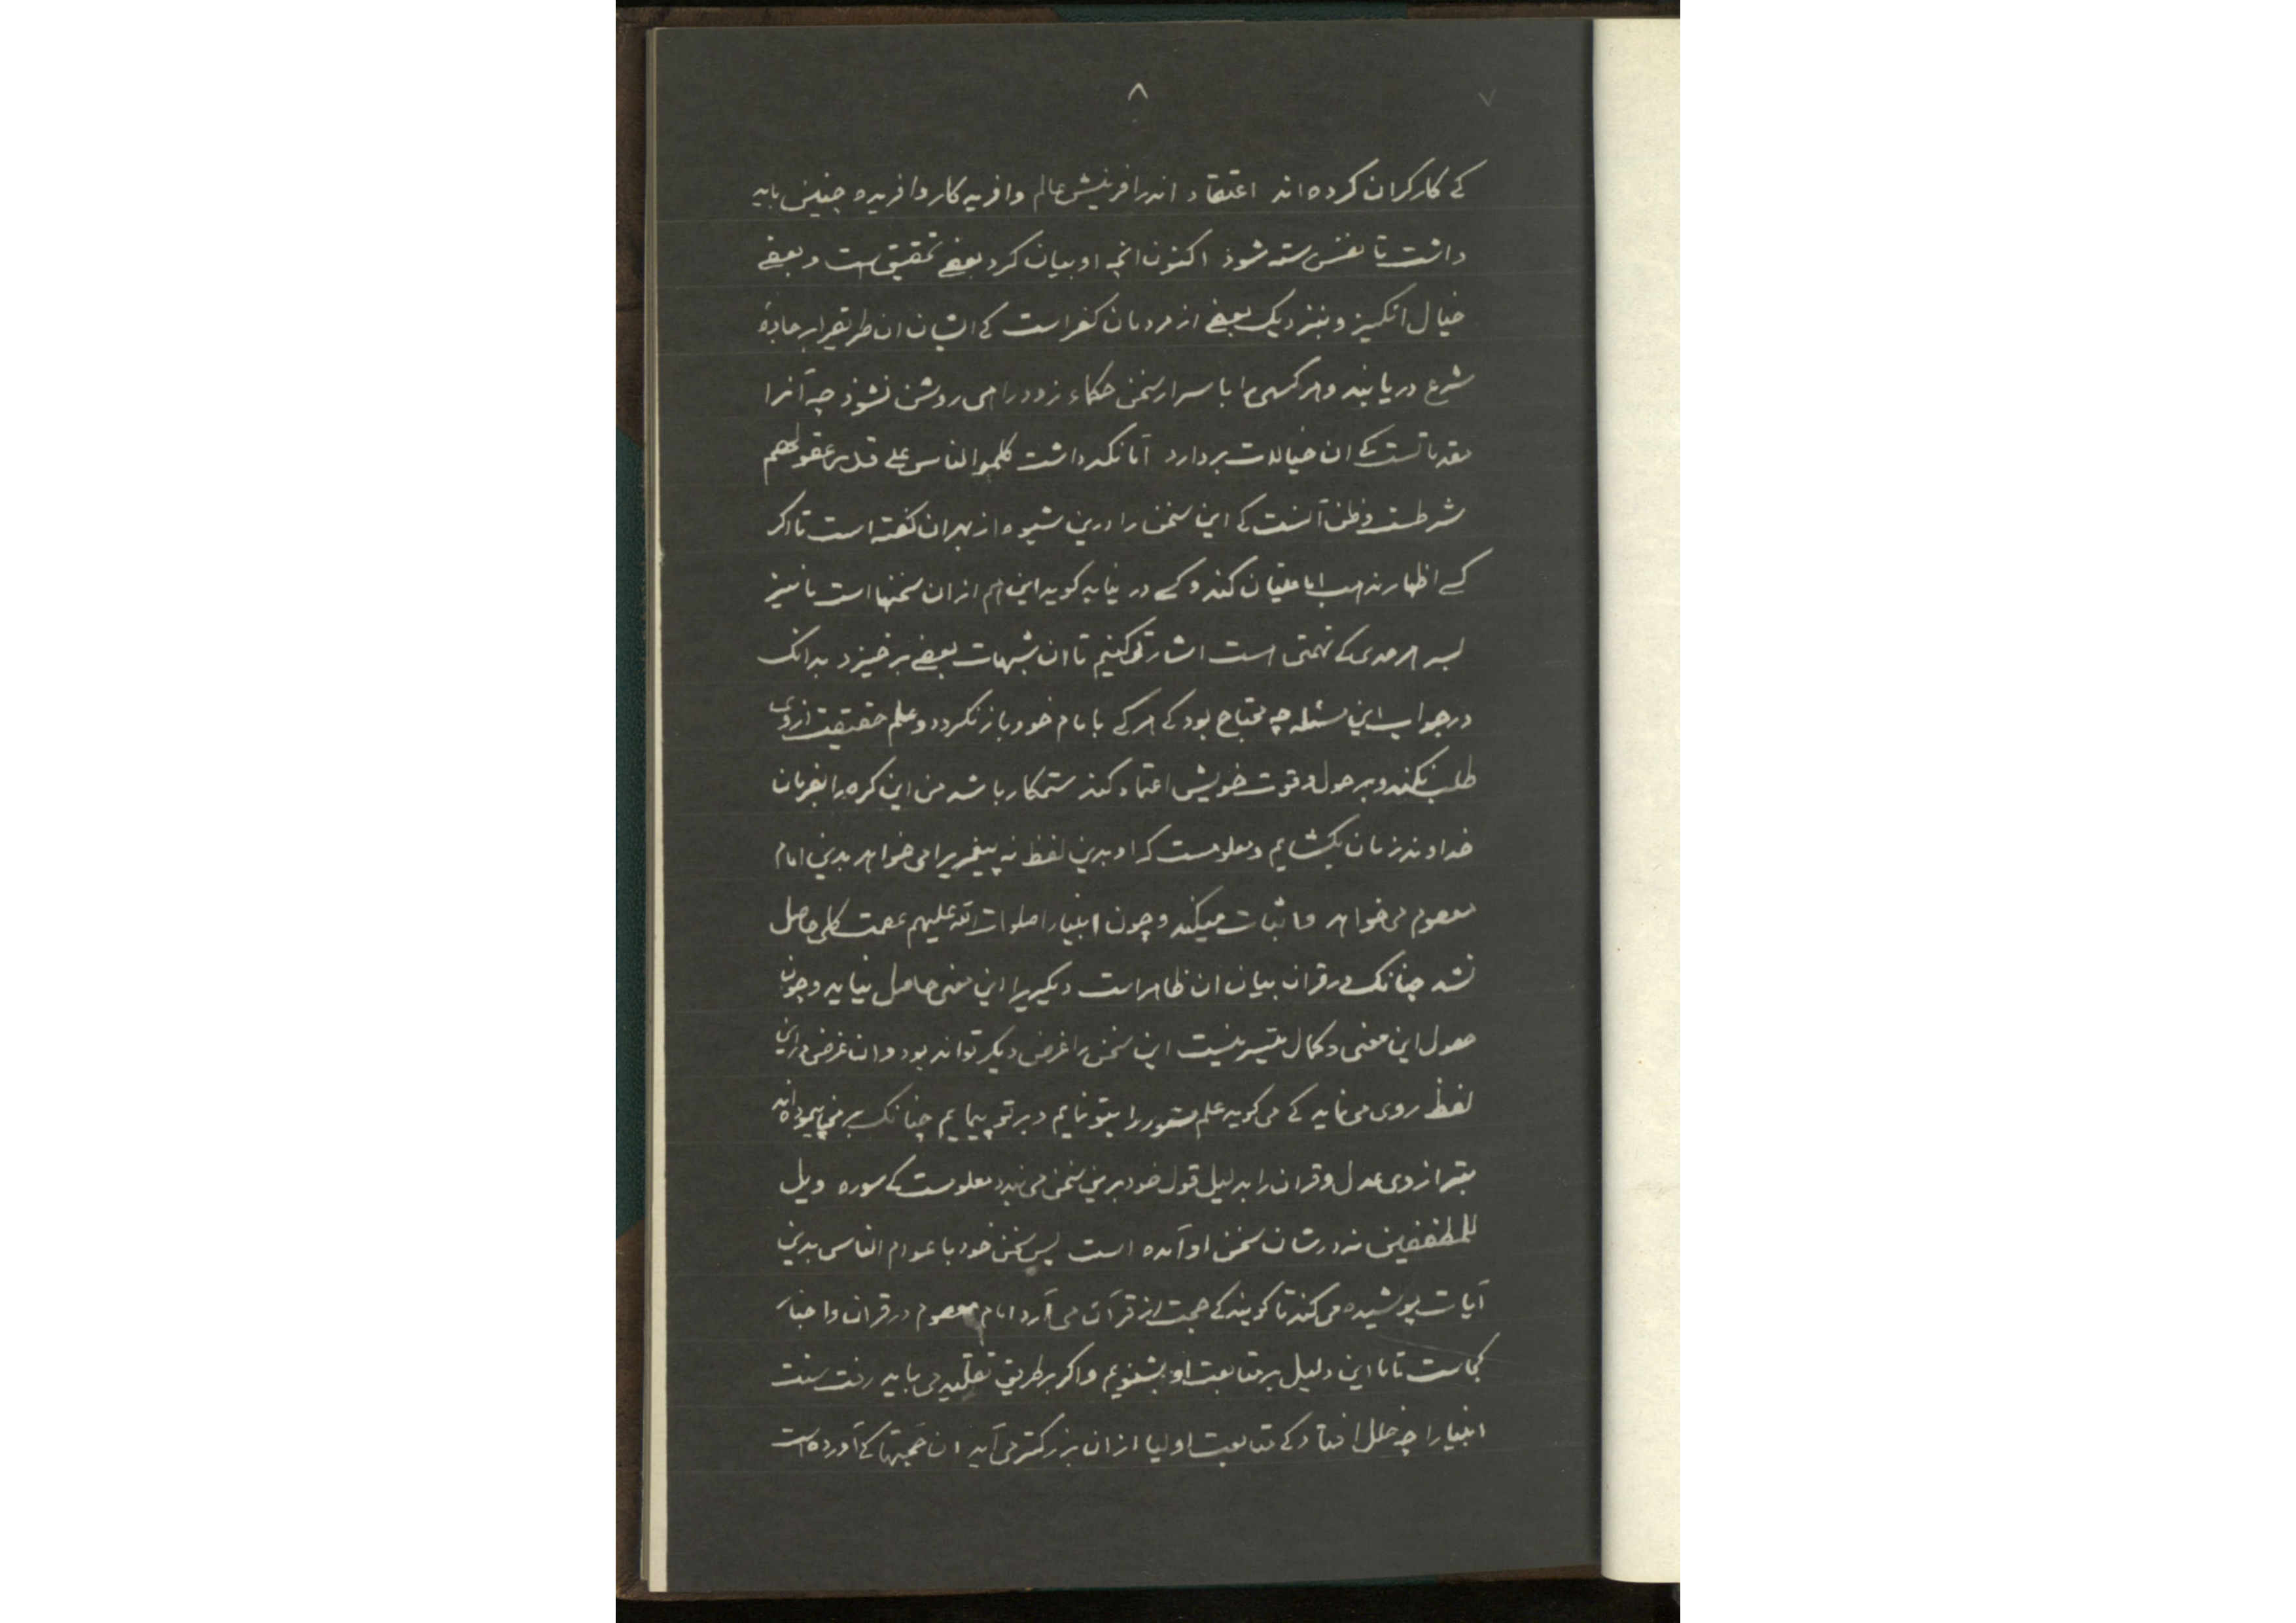 ۸ ۷
کے کارکران کرده‌اند اعتقاد اندر افرینش عالم وافریدکار وافریده چنین باید
داشت تا نفس رسته شوذ اکنون انچه او بیان کرد بعضے تحقیق است و بعضے
خیال انکیز و بنزدیک بعضے از مردمان کفر است کے ایشان ان طریقرا بر جادهٔ
شرع دریابند و هرکسی را با سرار سخن حکماء زود راهی روشن نشوذ چه آنرا
مقدماتست کے ان خیالات بردارد اما نکهداشت کلموا الناس علی قدر عقولهم
شرطست و ظن آنست کے این سخن را درین شیوه از بهر ان کفته است تا اکر
کسے اظهار مذهب اباعتیان کند و کسے در نیابد کوید این هم از ان سخنها است ما نیز
بسر هر حدی کے تهمتی است اشارتی کنیم تا ان شبهات بعضے برخیزد بدانک
در جواب این مسئله چه محتاج بود کے هرکے با امام خود باز نکردد و علم حقیقت از وی
طلب نکند و بر حول و قوت خویش اعتماد کند ستمکار باشد من این کره را بفرمان
خداوند زمان بکشایم و معلومست که او بدین لفظ نه پیغمبر را می‌خواهد بدین امام
معصوم می‌خواهد و اثبات میکند و چون انبیا را صلوات الله علیهم عصمت کلی حاصل
نشد چنانک در قران بیان ان ظاهر است دیکیریرا این معنی حاصل نیاید و چون
حصول این معنی و کمال متیسر نیست این سخن را غرض دیکر تواند بود و ان غرض در این
لفظ روی می‌نماید کے می‌کوید علم مستور را بتو نمایم و بر تو پیمایم چنانک بر من پیموده‌اند
بترازوی عدل و قران را بدلیل قول خود برین سخن می‌بندد معلومست کے سوره ویل
للمطففین نه در شان سخن او آمده است پس سخن خود با عوام الناس بدین
آیات پوشیده می‌کند تا کویند کے حجت از قرآن می‌آرد امام معصوم در قران و اخبار
کجاست تا ما این دلیل بر متابعت او بشنویم و اکر بر طریق تقلید می‌باید رفت سنت
انبیا را چه خلل افتاد کے متابعت اولیا از ان بزرکتر می‌آید ان حجتها کے آورده است